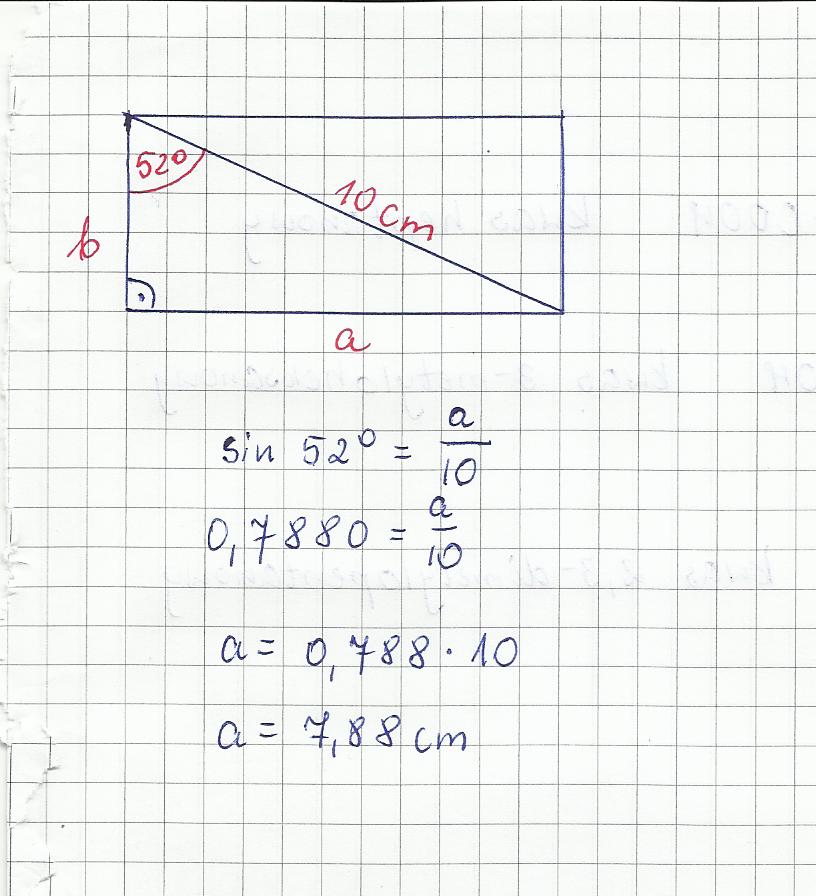 52°
10 cm
b
a
sin 52° = a/10
0,7880 = a/10
a = 0,788 · 10
a = 7,88 cm